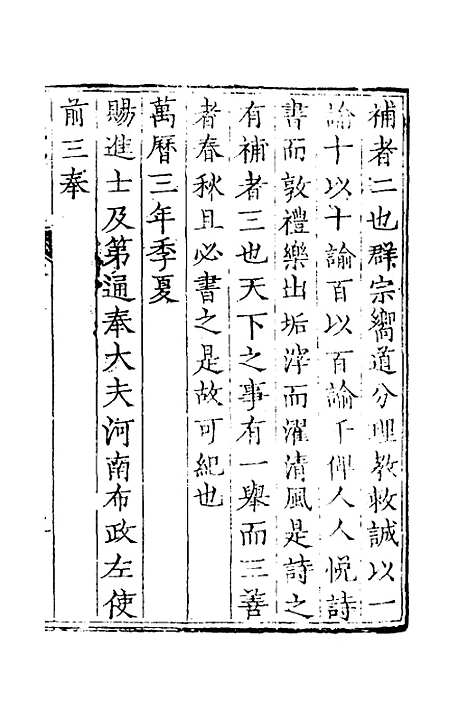 補者二也群宗嚮道分理教敕誠以一
諭十以十諭百以百諭千俾人人悅詩
書而敦禮樂出垢滓而濯清風是詩之
有補者三也天下之事有一舉而三善
者春秋且必書之是故可紀也
萬曆三年季夏
賜進士及第通奉大夫河南布政左使
前三奉